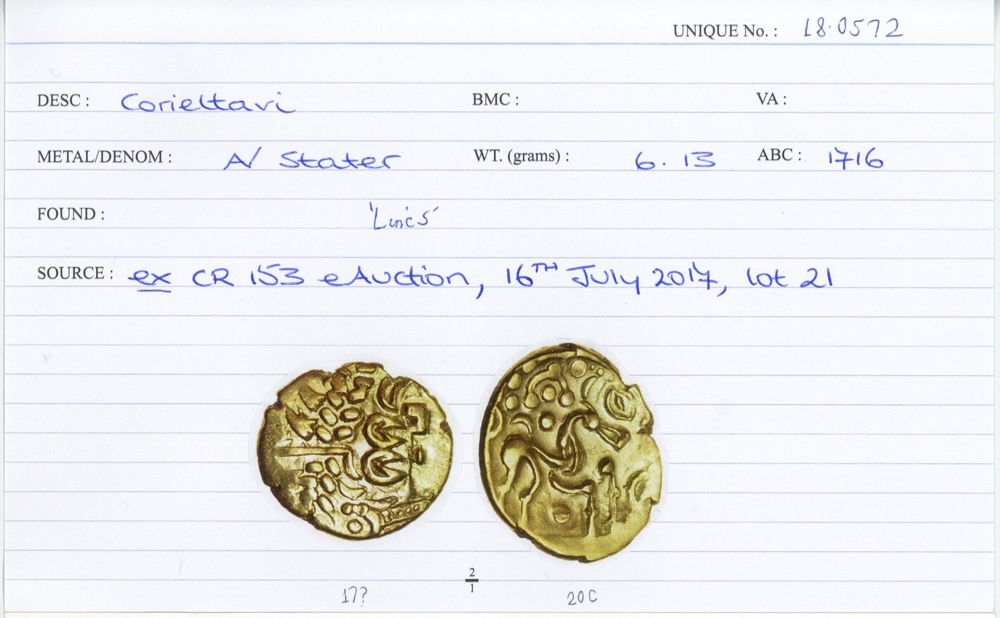 UNIQUE No. : 18.0572
DESC : Corieltavi BMC : VA :
METAL/DENOM : A/ Stater WT. (grams) : 6.13 ABC : 1716
FOUND : 'Lincs'
SOURCE : ex CR 153 eAuction, 16TH July 2017, lot 21
2
1
17? 20C